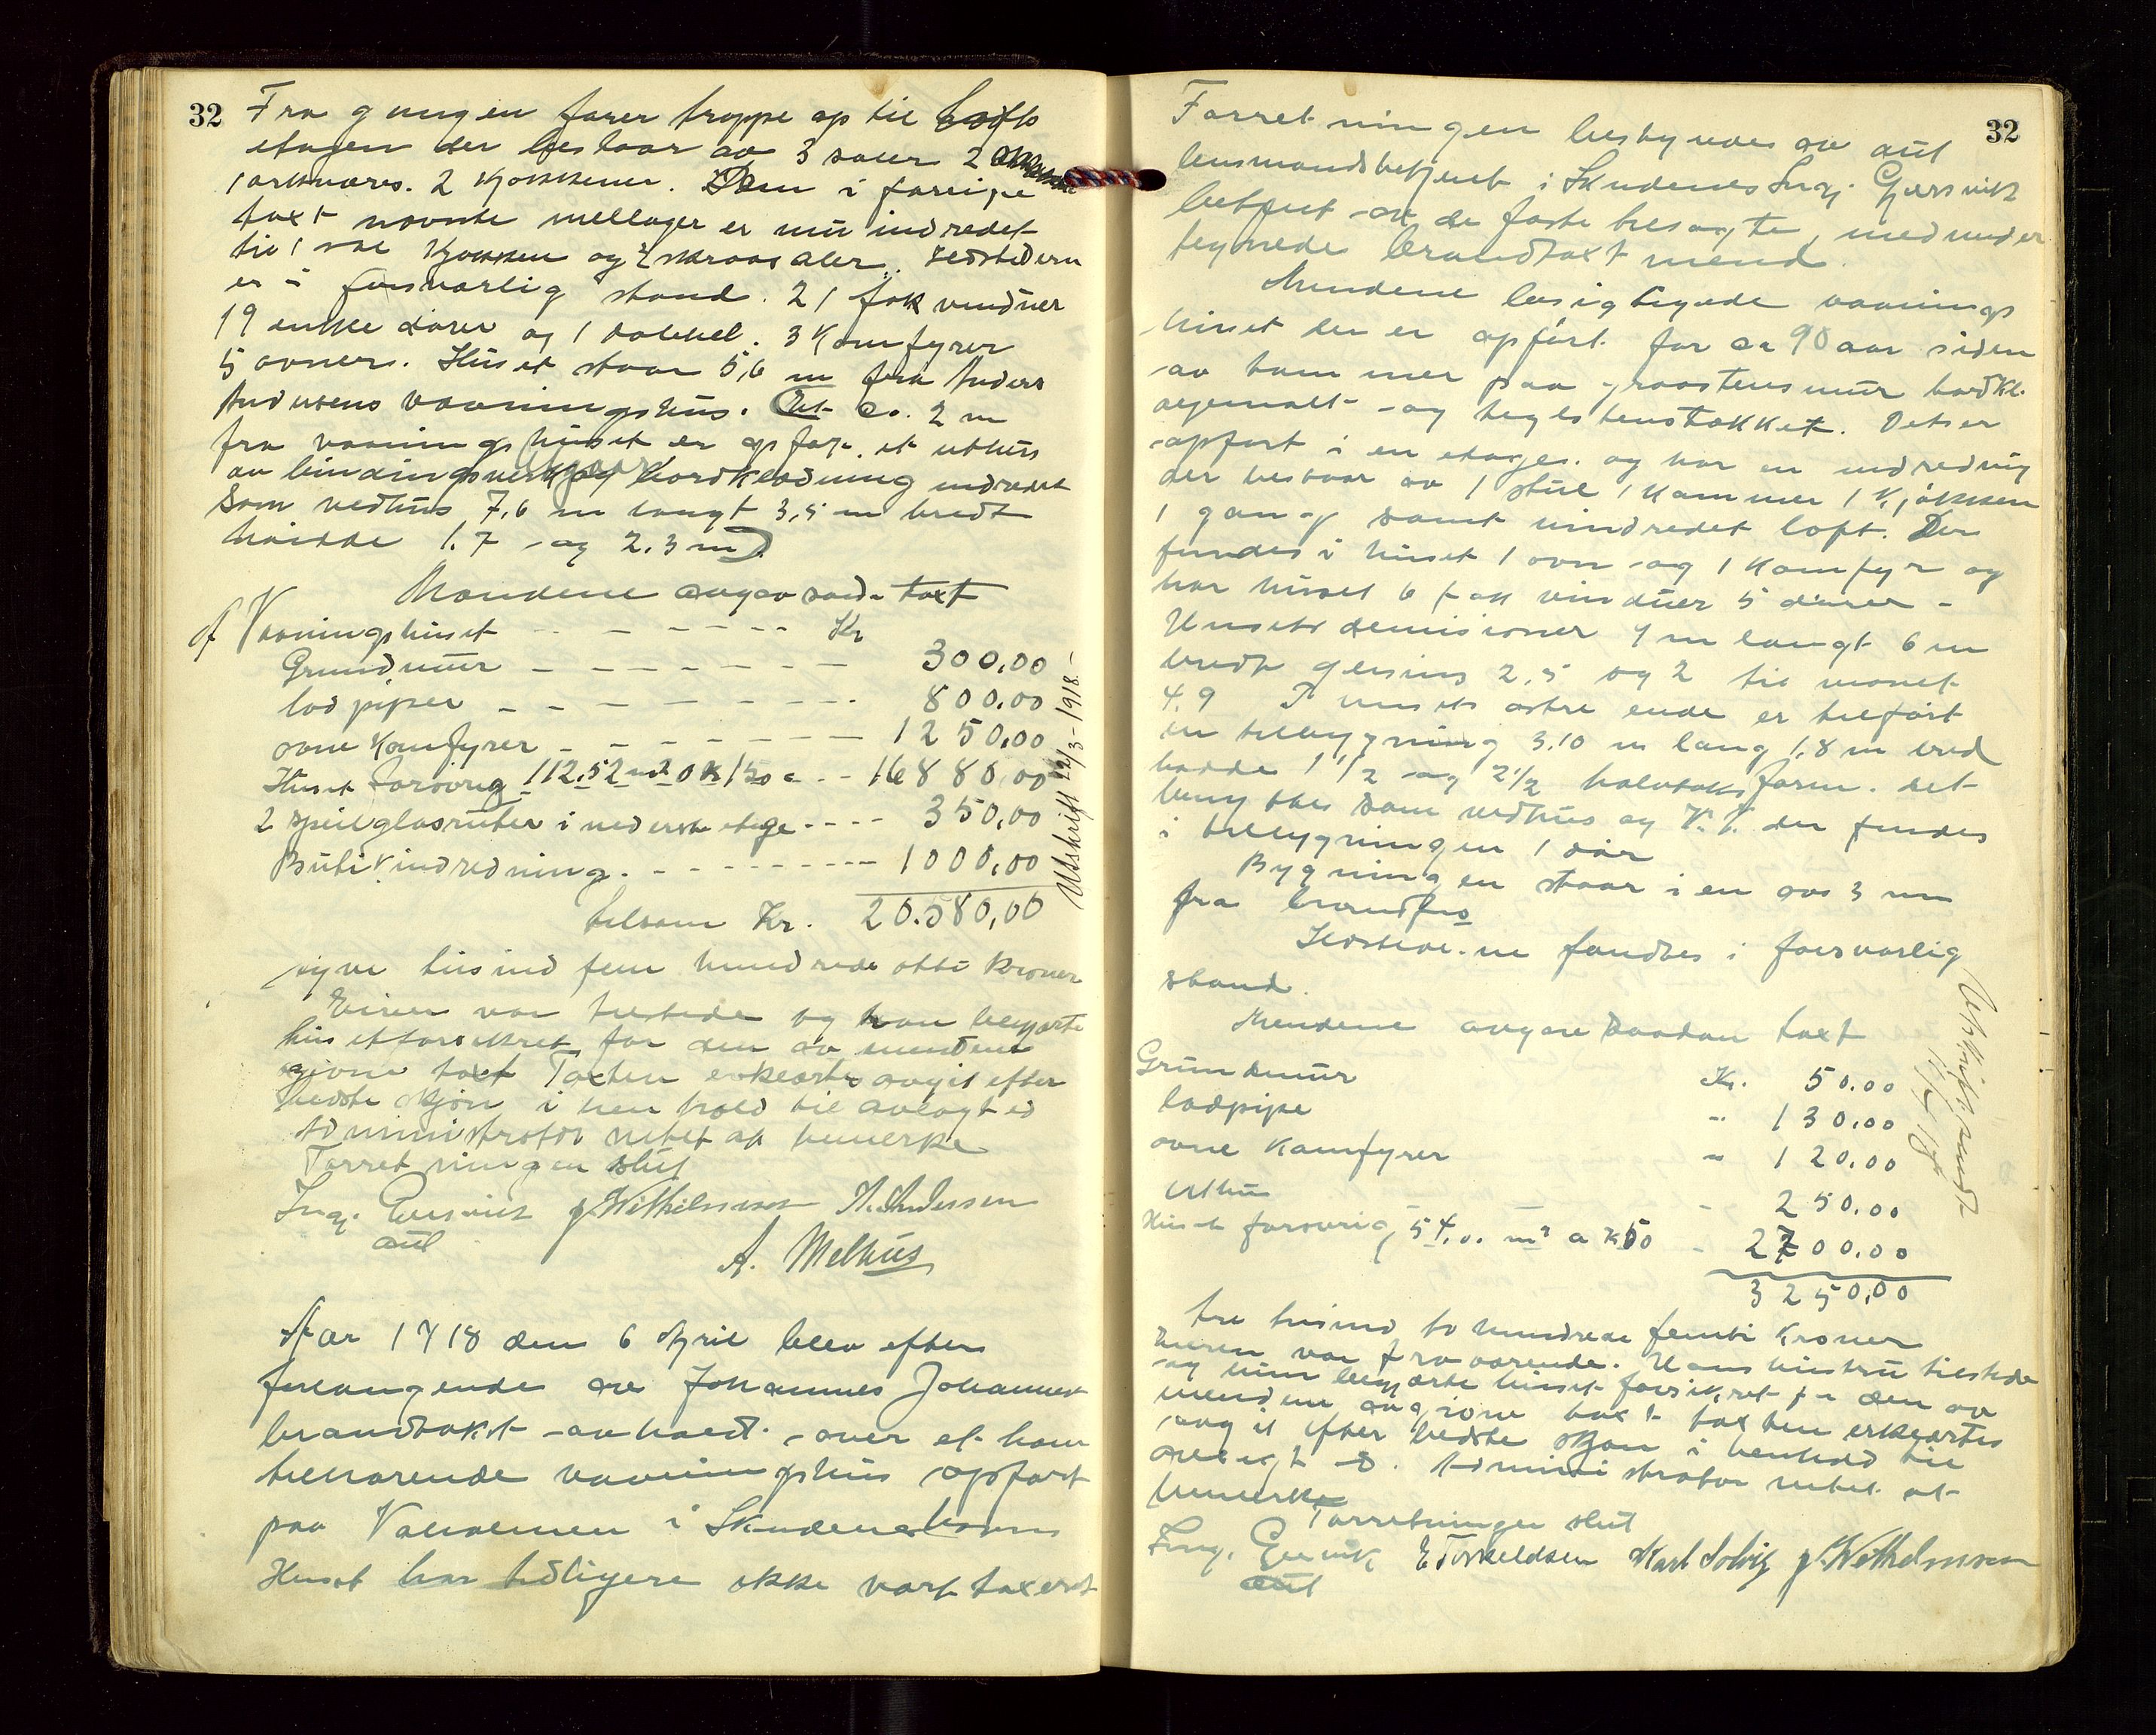 32
Fra gangen fører trappe op til Lofts
etagen der bestaar av 3 saler 2
1 arkværs. 2 Kjøkkener. Den i forrige
taxt nævnte mellager er nu indredet
til 1 sal Kjøkken og 2 skraasaler. Ildstederne
er i forsvarlig stand. 21 fak vinduer
19 enkle dører og 1 dobbel. 3 Komfyrer
5 ovner. Huset staar 5,6 m fra Anders
Andersens vaaningshus. Et ca. 2 m
fra vaaningshuset er opført et uthus
av bindingsverk og bordklædning indredet
som vedhus 7,6 m langt 3,5 m bredt
høide 1.7 og 2.3 m
Mændene avgav saad. taxt
af Vaaningshuset - - - - - - - Kr
Grundmur - - - - - - - 300,00
lod piper - - - - - - - - 800.00
ovne Komfyrer - - - - - - - 1250,00
Huset forøvrig 112,52 m2 a K 150 a - - 16880,00
2 speilglasruter i nederste etage - - - - 350,00
Butikindredning. - - - - - - - - 1000,00
tilsam Kr. 20.580,00
Utskrift 22/3-1918.
tyve tusind fem hundrede otti kroner
Eieren var tilstede og han begjærte
huset forsikret for den av mendene
givne taxt Taxten erklærtes avgit efter
bedste skjøn i henhold til avlagt ed
Administrator intet at bemerke
Forretningen slut
Ingj. Gjersvik J Wilhelmsen H. Andersen
aut
A. Melhus
Aar 1918 den 6 April blev efter
forlangende av Johannes Johannes
brandtakst avholdt over et ham
tilhørende vaaningshus opført
paa Vaholmen i Skudeneshavn
Huset har tidligere ikke vært taxeret
32
Forretningen bestyredes av aut
lensmandsbetjent i Skudenes Ingj. Gjersvik
betjent av de faste besagte, medunder
tegnede brandtaxtmend.
Mendene besigtigede vaanings
huset der er opført for ca 90 aar siden
av tømmer paa graastensmur bordkl.
oljemalt og teglstenstækket. Det er
opført i en etage. og har en indredning
der bestaar av 1 stue 1 kammer 1 Kjøkken
1 gang samt uindredet loft. Der
findes i huset 1 ovn og 1 Komfyr og
har huset 6 fak vinduer 5 dører -
Husets demisioner 9 m langt 6 m
bredt gesims 2,5 og 2 til mønet
4.9 I husets østre ende er tilført
en tilbygning 3.10 m lang 1.8 m bred
høide 1 1/2 og 2 1/2 halvtaksform. det
benyttes som vedhus og V.K. der findes
i tilbygningen 1 dør
Bygningen staar i en avs 3 m
fra brandfri
Ildstederne fandtes i forsvarlig
stand.
Mendene avgave saadan taxt
Grundmur Kr. 50.00
lodpipe " 130.00
ovne Kamfyrer " 120.00
Uthus - 250.00
Huset forøvrig 54.0. m2 a K 50 - 2700.00
3250,00
Utskrift sendt
11/4 18
tre tusind to hundrede femti Kroner
Eieren var fraværende. Hans hustru tilstede
og hun begjærte huset forsikret for den av
mendene avgivne taxt taxten erklærtes
avgit efter bedste skjøn i henhold til
avlagt ed. Administrator intet at
bemerke
Forretningen slut
Ingj. Gjersvik E Torkeldsen Karl Solvig J Wilhelmsen
aut